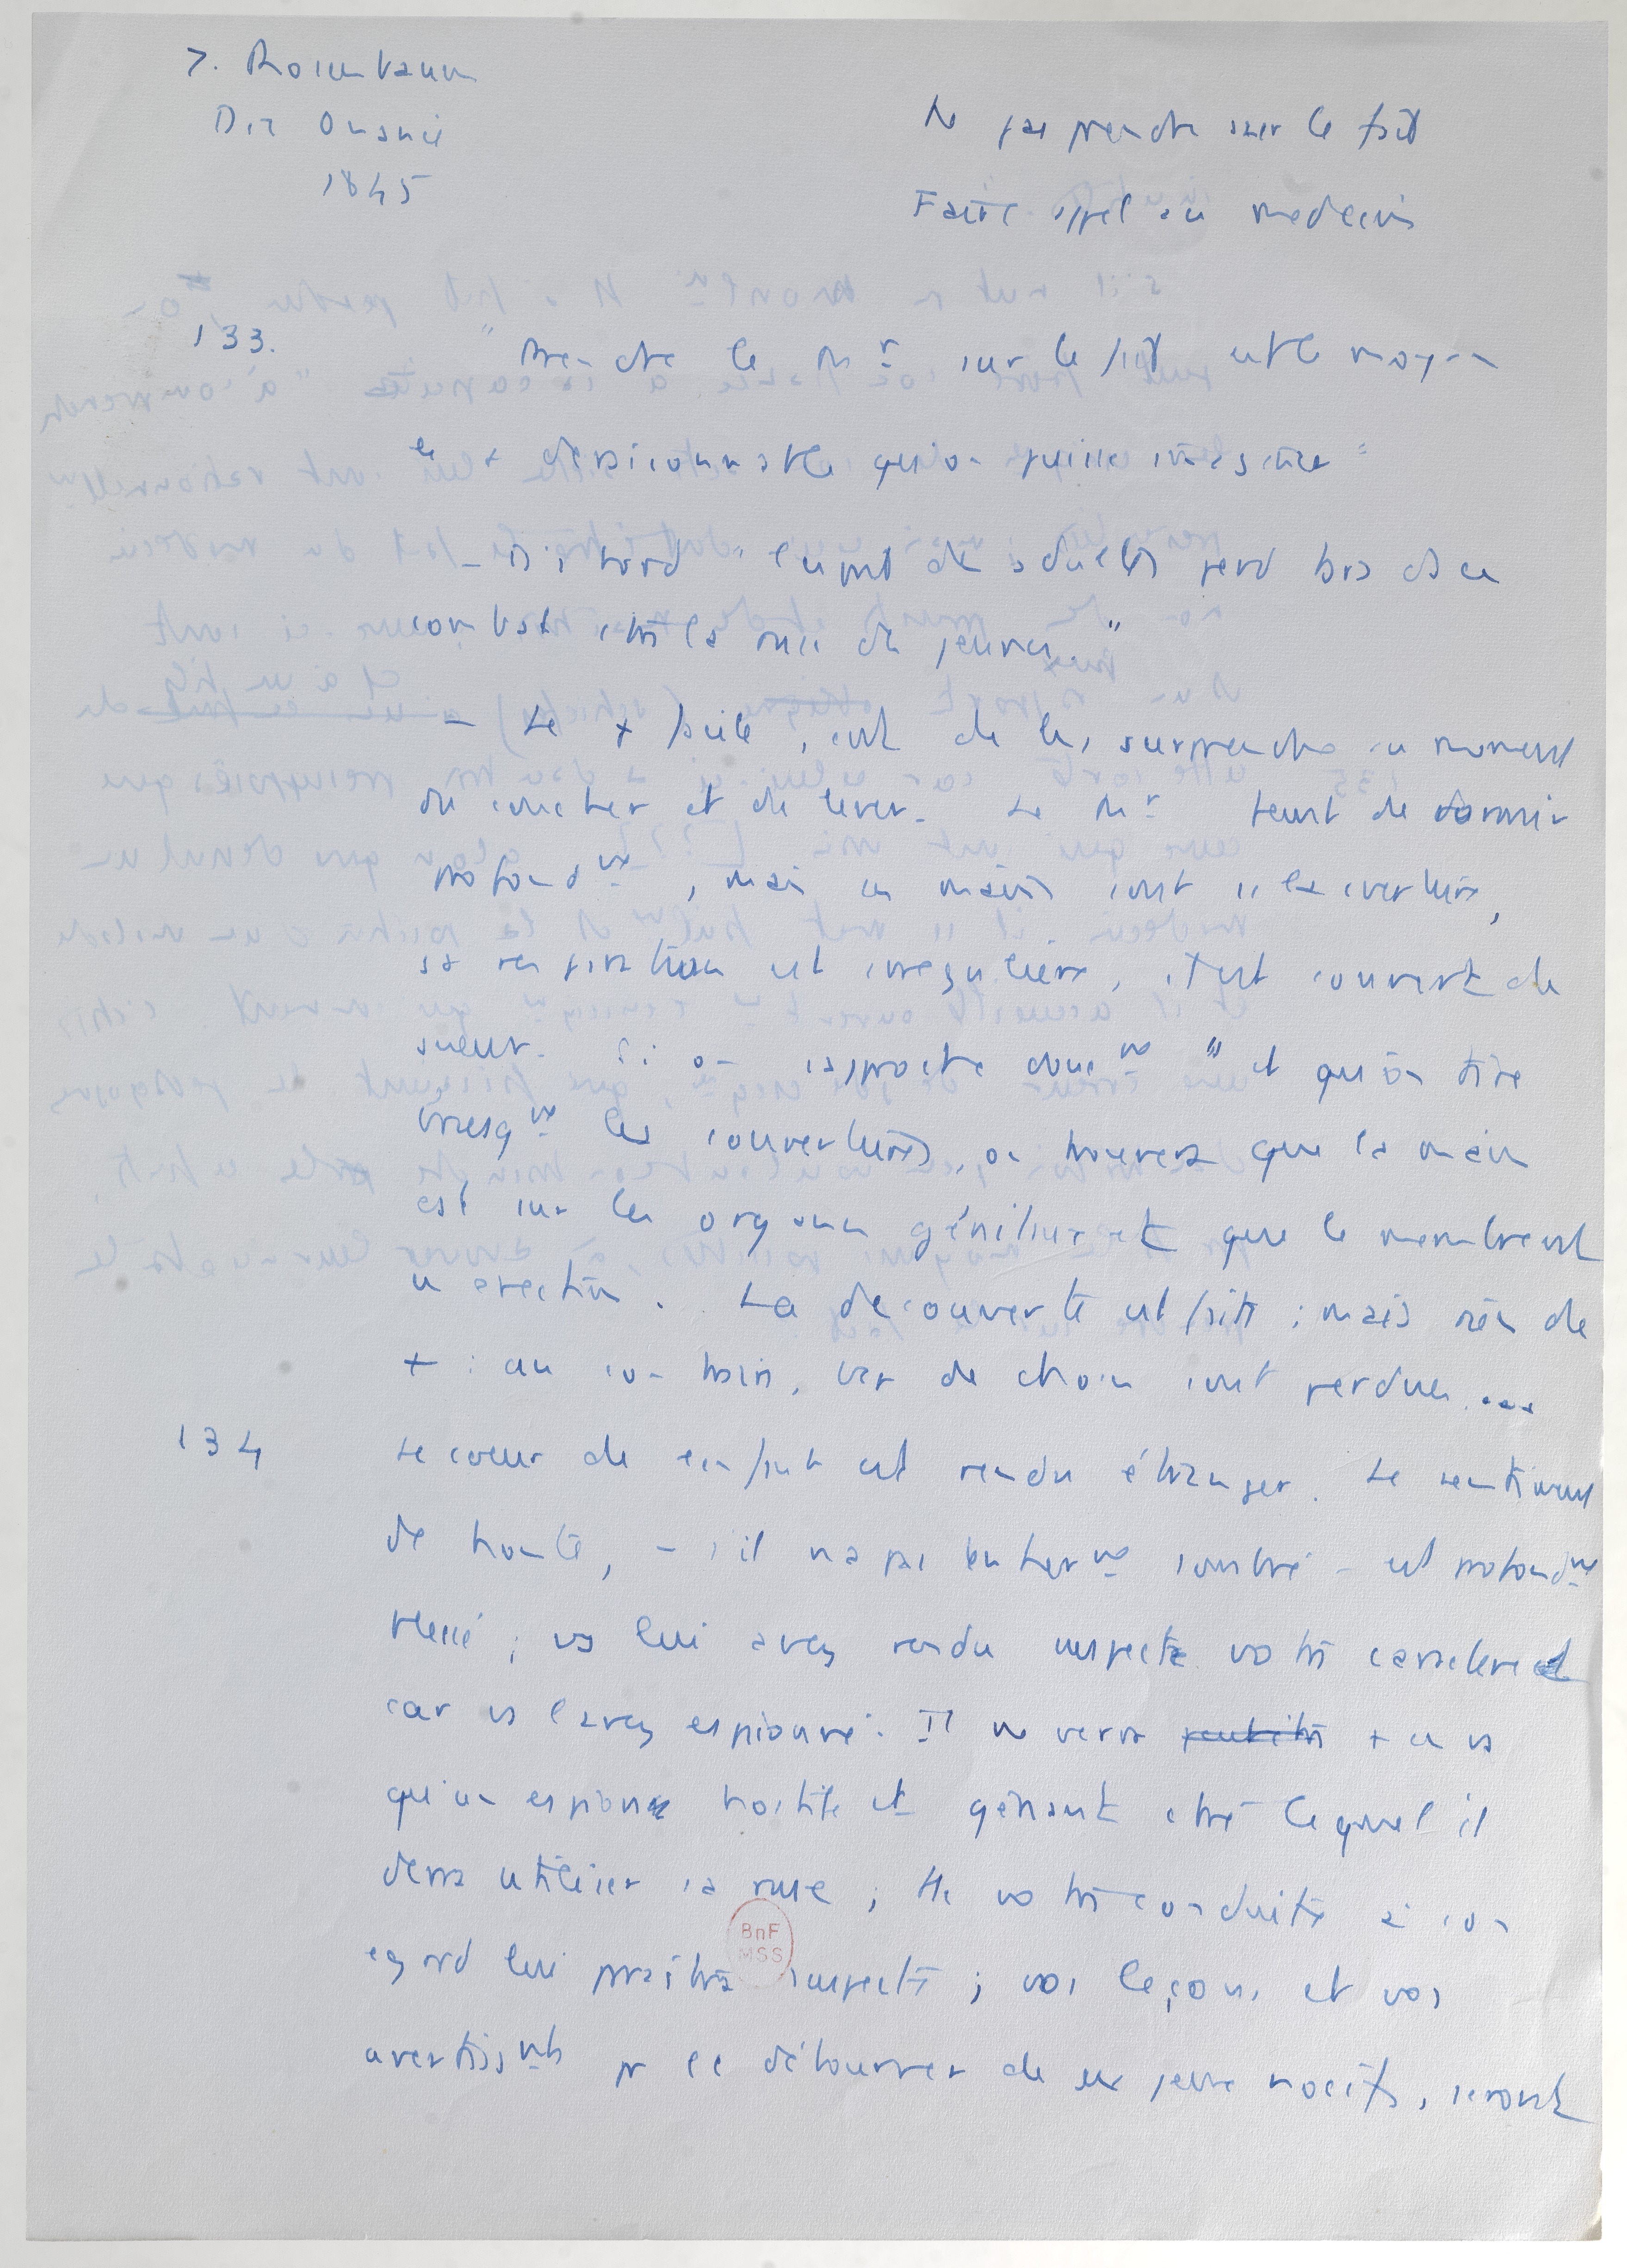 J. Rosenbaum
Die Onanie
1845
Ne pas prendre sur le fait
Faire appel au médecin
133. "Prendre le Mr sur le fait est le moyen
le + déraisonnable qu'on puisse imaginer"
– D'abord "l'esprit de adultes perd bras ds ce
combat ctre la ruse de jeunes."
– Le + facile, est de les surprendre au moment
du coucher et de lever. Le Mr feint de dormir
profondmt, mais ses mains sont ss les couvertures,
sa respiration est irrégulière, il est couvert de
sueur. Si on s'approche doucmt "et qu'on tire
brusqmt les couvertures, on trouvera que la main
est sur les organes génitaux et que le membre est
en érection. La découverte est faite ; mais rien de
+ : au contraire, bcp de choses sont perdues...
134 Le cœur de l'enfant est rendu étranger. Le sentiment
de honte, – s'il n'a pas entiermt sombré – est profondmt
blessé ; vs lui avez rendu suspecte votre caractère et
car vs l'avez espionné. Il ne verra peut être + en vs
qu'un espion hostile et gênant ctre lequel il
devra utiliser sa ruse ; tte votre conduite à son
egard lui paraîtra suspecte ; vos leçons et vos
avertissmts pr le détourner de ses jeux nocifs, seront
BnF
MSS